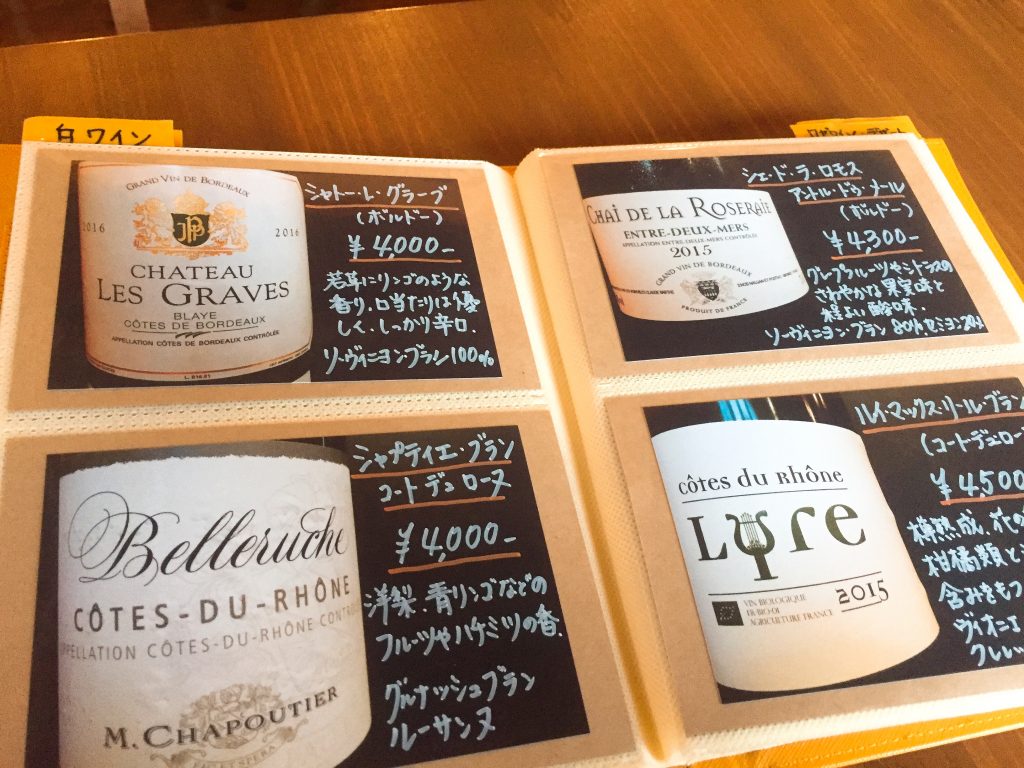 白ワイン
GRAND VIN DE BORDEAUX
JPB
2016
2016
CHATEAU
LES GRAVES
BLAYE
CÔTES DE BORDEAUX
APPELLATION CÔTES DE BORDEAUX CONTRÔLÉE
シャトー・レ・グラーブ
(ボルドー)
¥4,000-
若草にリンゴのような
香り。口当たりは優
しく、しっかり辛口。
ソーヴィニヨンブラン100%
Belleruche
CÔTES-DU-RHÔNE
APPELLATION CÔTES-DU-RHÔNE
M. CHAPOUTIER
シャプティエ・ブラン
コートデュローヌ
¥4,000-
洋梨、青リンゴなどの
フルーツやハチミツの香.
グルナッシュブラン
ルーサンヌ
CHAI DE LA ROSERAIE
ENTRE-DEUX-MERS
APPELLATION ENTRE-DEUX-MERS CONTRÔLÉE
2015
GRAND VIN DE BORDEAUX
PRODUIT DE FRANCE
シェ・ド・ラ・ロモス
アントル・ドゥ・メール
(ボルドー)
¥4,300-
グレープフルーツやシトラスの
さわやかな果実味と
程よい酸味.
ソーヴィニヨンブラン80%セミヨン
côtes du Rhône
Lyre
2015
VIN BIOLOGIQUE
FR-BIO-01
AGRICULTURE FRANCE
ルイ・マックス・リール・ブラン
(コートデュロー
¥4,500
樽熟成、花の
柑橘類と
含みをもつ
ヴィオニエ
クレレッ